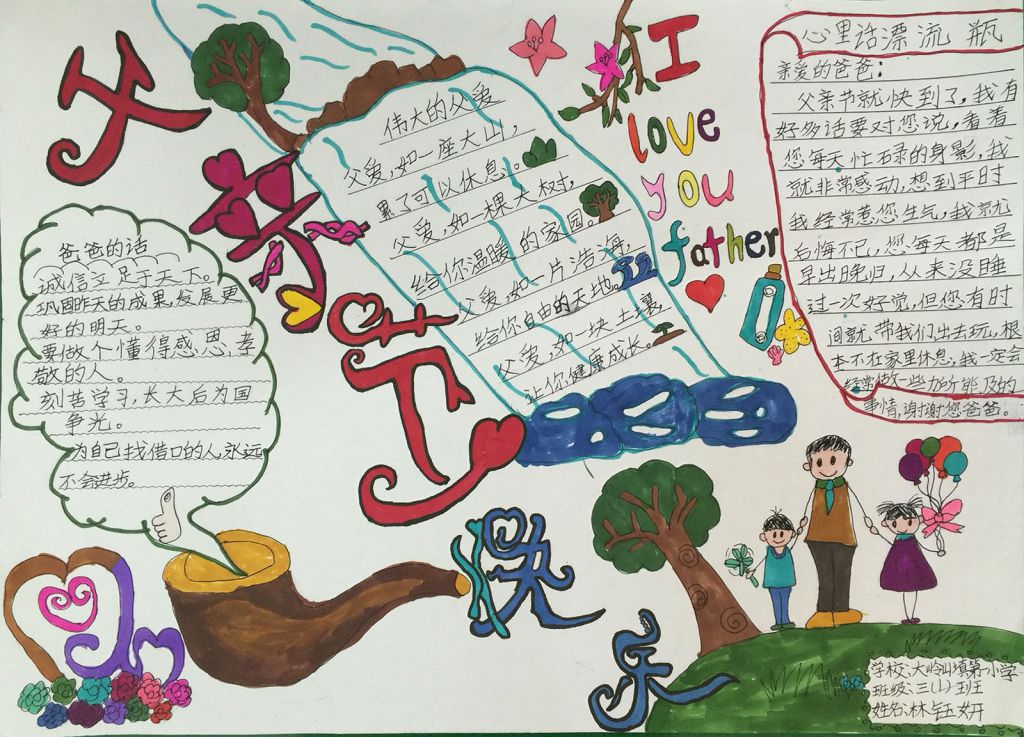 父亲节
快乐
I
love
you
father
伟大的父爱
父爱,如一座大山,
累了可以休息。
父爱,如一棵大树,
给你温暖的家园。
父爱,如一片浩海,
给你自由的天地。
父爱,如一块土壤,
让你健康成长。
心里话漂流瓶
亲爱的爸爸:
父亲节就快到了,我有
好多话要对您说,看着
您每天忙碌的身影,我
就非常感动,想到平时
我经常惹您生气,我就
后悔不已,您每天都是
早出晚归,从来没睡
过一次好觉,但您有时
间就带我们出去玩,根
本不在家里休息,我一定会
经常做一些力所能及的
事情,谢谢您爸爸。
爸爸的话
诚信立足于天下。
巩固昨天的成果,发展更
好的明天。
要做个懂得感恩,孝
敬的人。
刻苦学习,长大后为国
争光。
为自己找借口的人永远
不会进步。
学校:大岭山填第一小学
班级:三(1)班
姓名:林钰妍